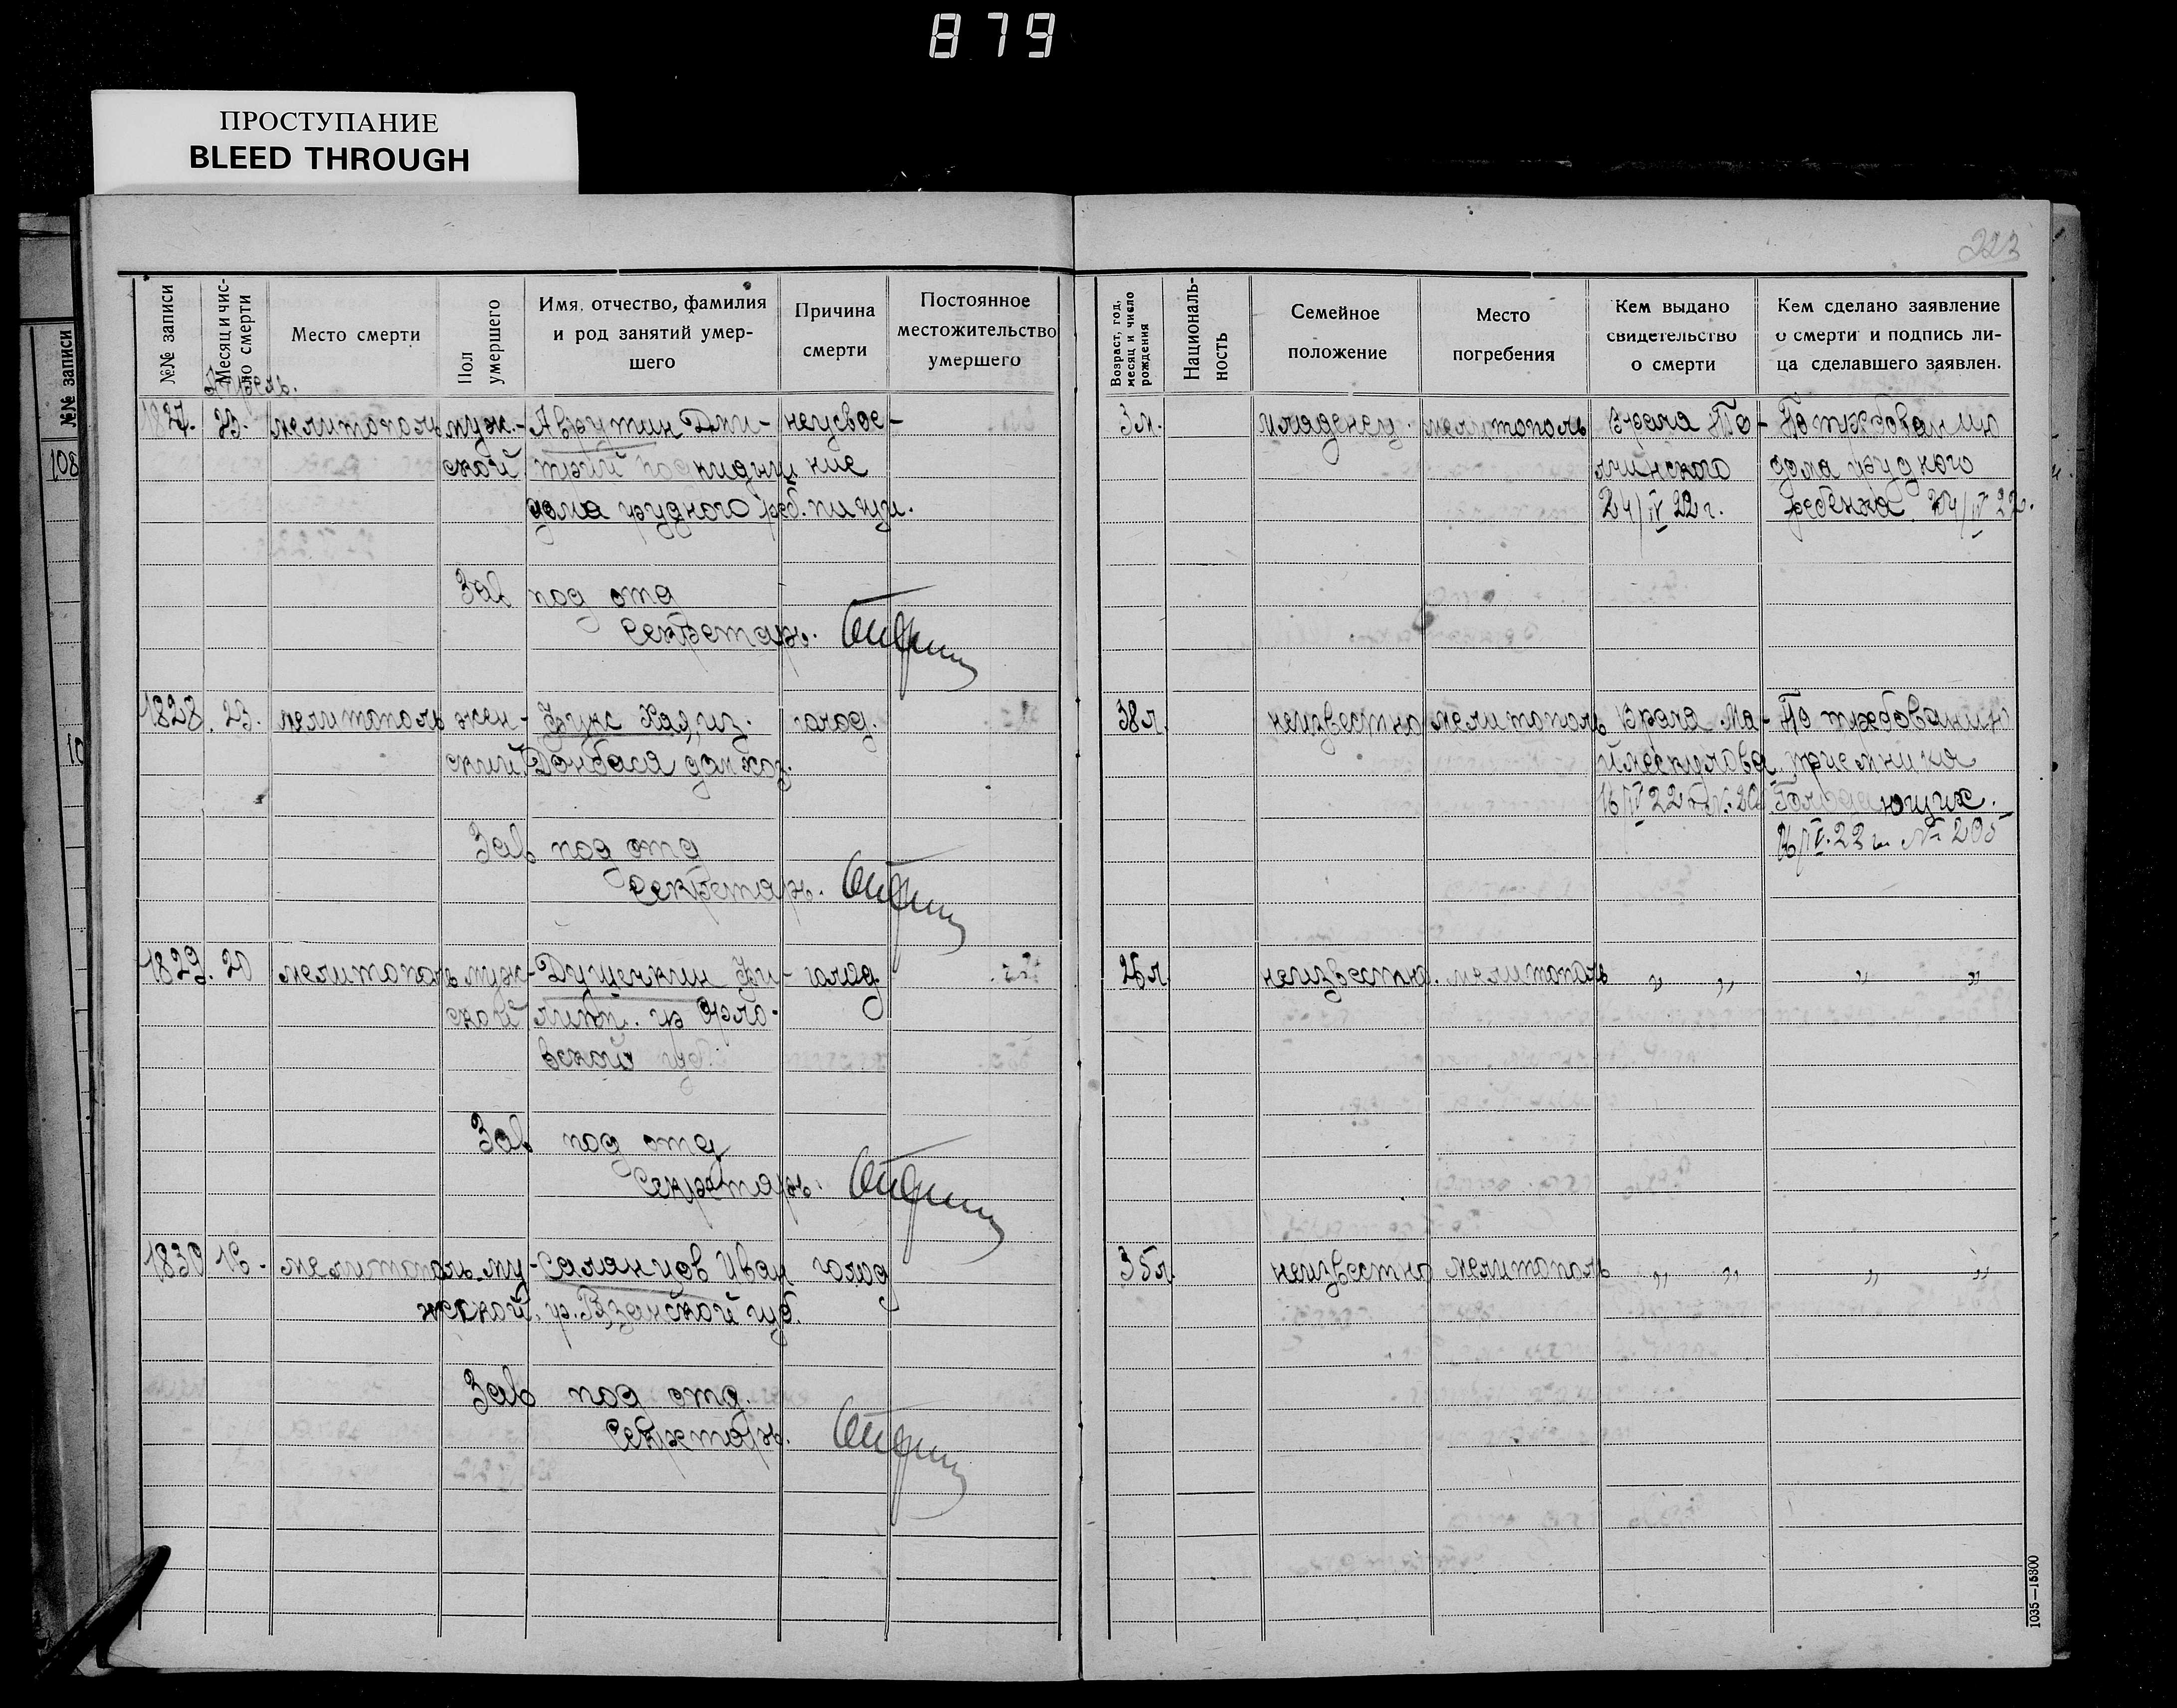 879
ПРОСТУПАНИЕ
BLEED THROUGH
223
№№ записи
Месяц и чис-
ло смерти
Место смерти
Пол
умершего
Имя, отчество, фамилия
и род занятий умер-
шего
Причина
смерти
Постоянное
местожительство
умершего
Возраст, год,
месяц и число
рождения
Националь-
ность
Семейное
положение
Место
погребения
Кем выдано
свидетельство
о смерти
Кем сделано заявление
о смерти и подпись ли-
ца сделавшего заявлен.
№№ записи
108
Апрель.
1827. 23. мелитополь муж- Аврутин Дми- неусвое- 3 м. младенец. мелитополь врача По- По требованию
ской трий подкидыш ние лчинского дома грудного
дома грудного реб. пищи. 24/IV 22 г. ребенка 24/IV 22г.
Зав под отд
Секретарь.
1828. 23. мелитополь жен- голод. 38 л. неизвестно мелитополь врача Ма- По требованию
ский Донбася дом хоз. приемника
16/IV 22 Голодающих.
16/IV. 22 г. № 205
Зав под отд
Секретарь.
1829. 20 мелитополь муж- Душенкин Фи- голод 26 л. неизвестно. мелитополь „ „ „ „
ской липп. гр Орло-
вской губ.
Зав под отд
Секретарь.
1830 19. мелитополь. му- Саланцов Иван голод 35 л. неизвестно мелитополь „ „ „ „
жской. гр. Рязанской губ.
Зав под отд.
Секретарь.
1035—15800